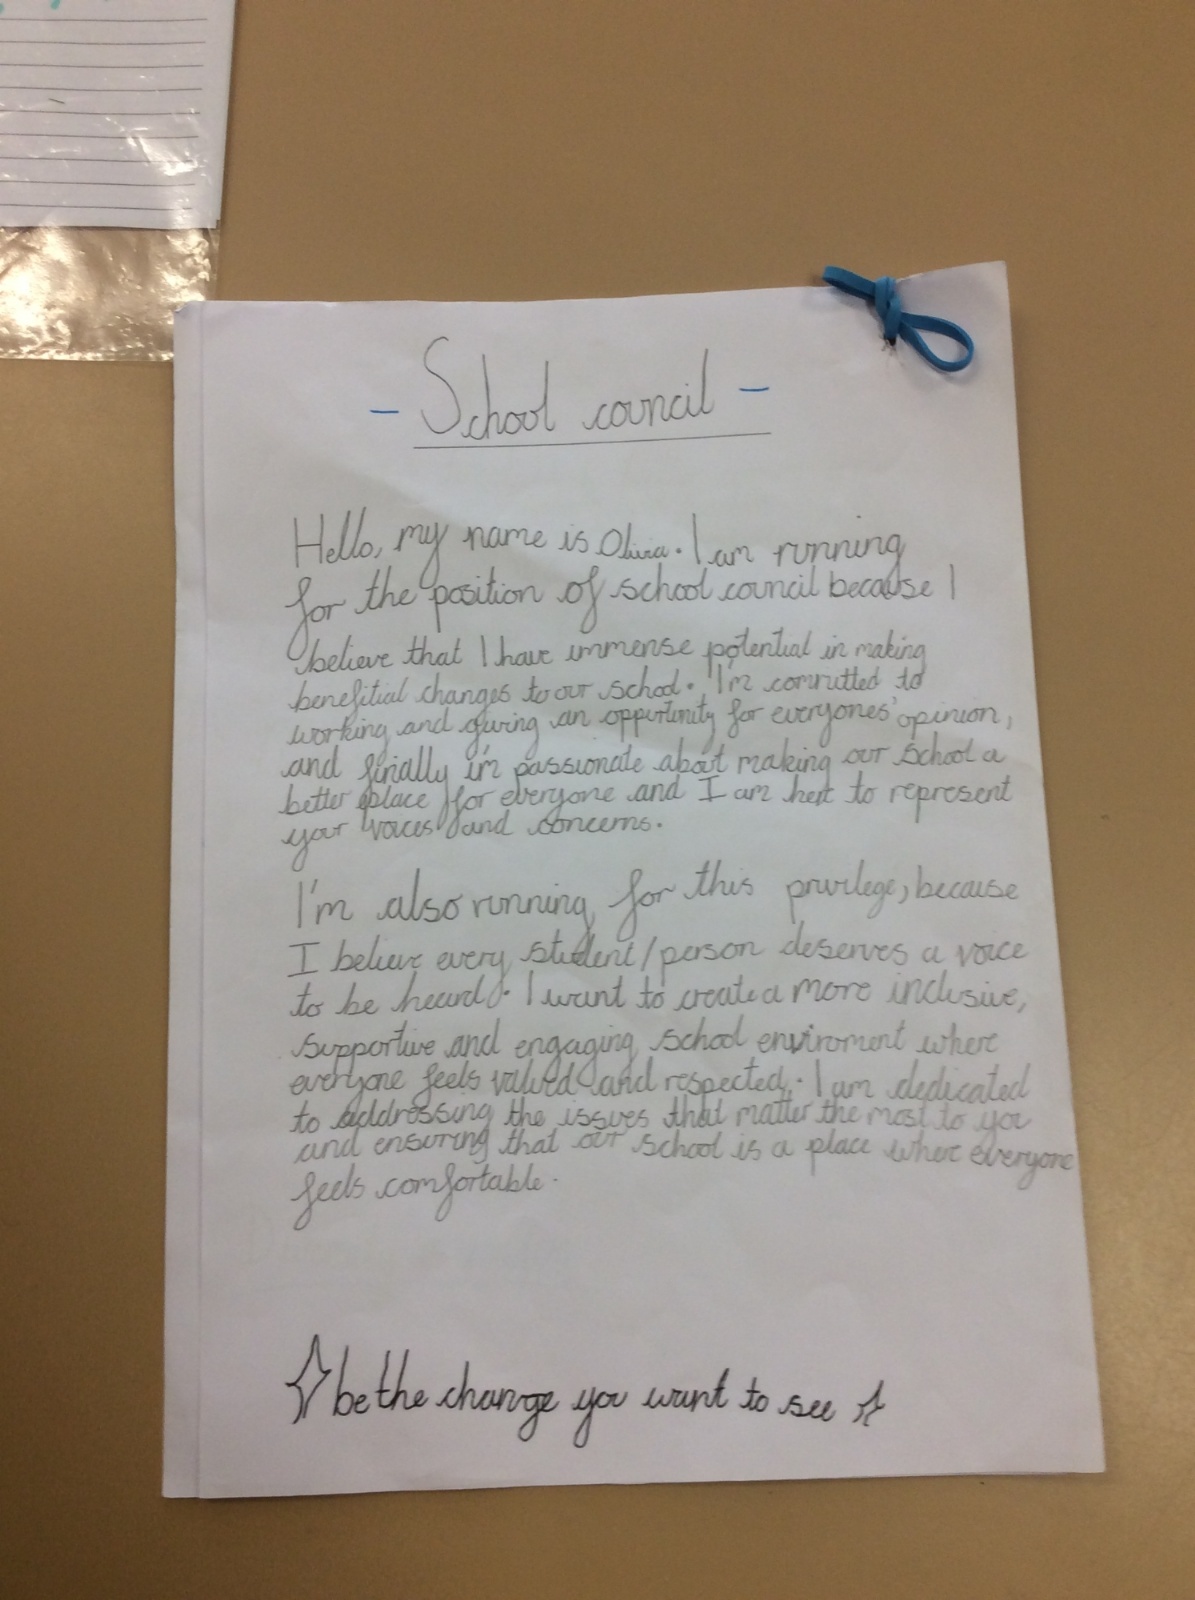 - School council -
Hello, my name is Olivia. I am running
for the position of school council because I
believe that I have immense potential in making
benefitial changes to our school. I'm committed to
working and giving an opportunity for everyones' opinion,
and finially i'm passionate about making our school a
better place for everyone and I am here to represent
your voices and concerns.
I'm also running for this privilege, because
I believe every student/person deserves a voice
to be heard. I want to create a more inclusive,
supportive and engaging school enviroment where
everyone feels valued and respected. I am dedicated
to addressing the issues that matter the most to you
and ensuring that our school is a place where everyone
feels comfortable.
be the change you want to see